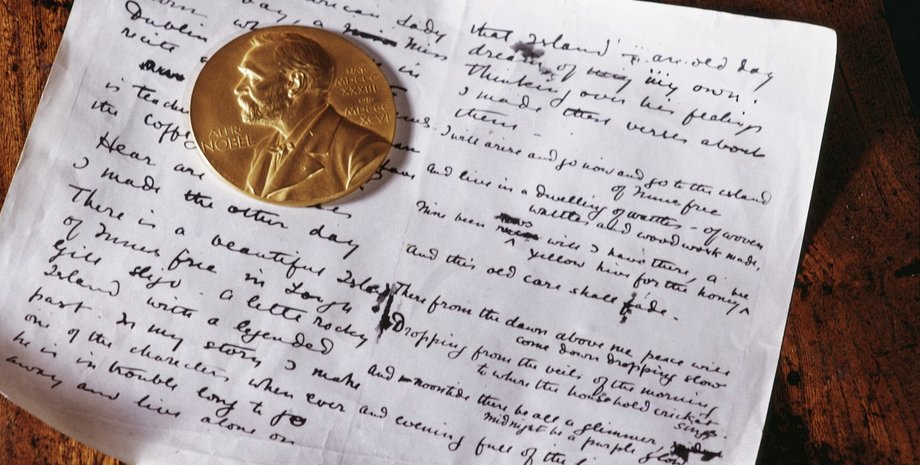 day, a
American Lady
Dublin
recite
in
is
the coffee
Hear are
I made the other day
There is a beautiful Island
of Innis free in Lough
Gill Sligo. A little rocky
Island with a legended
past. In my story I make
one of the characters when ever
he is in trouble long to go
away and live alone on
that Island — an old day
dream of my own.
Thinking over his feelings
I made these verses about
them —
I will arise and go now and go to the island
of Innis free
and live in a dwelling of wattles — of woven
wattles and wood work made,
Nine been rows will I have there, a
yellow hive for the honey bee
And this old care shall fade.
There from the dawn above me peace will
come down dropping slow
Dropping from the veils of the morning
to where the household cricket
sings.
And noontide there be all a glimmer,
midnight be a purple glow
and evening full of the
ALFR.
NOBEL
NAT.
MDCCC
XXXIII
OB.
MDCCC
XCVI